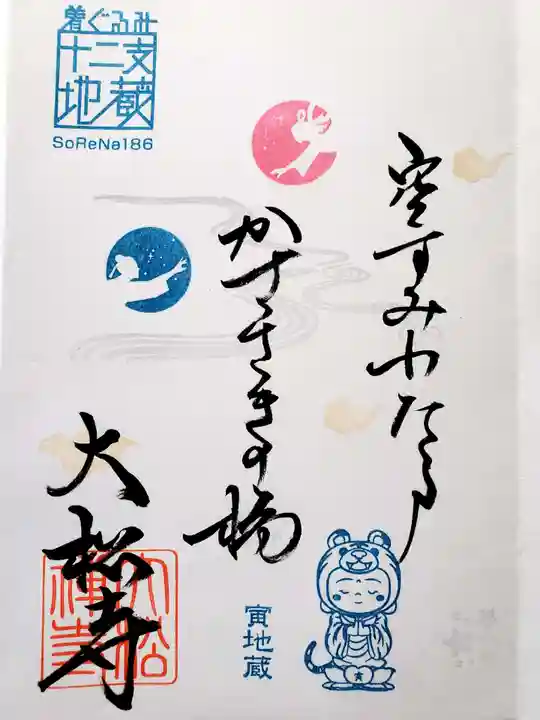 空すみわたる
かささきの橋
大松寺
着ぐるみ
十二支
地蔵
SoReNa186
寅地蔵
寅
大松
禅寺